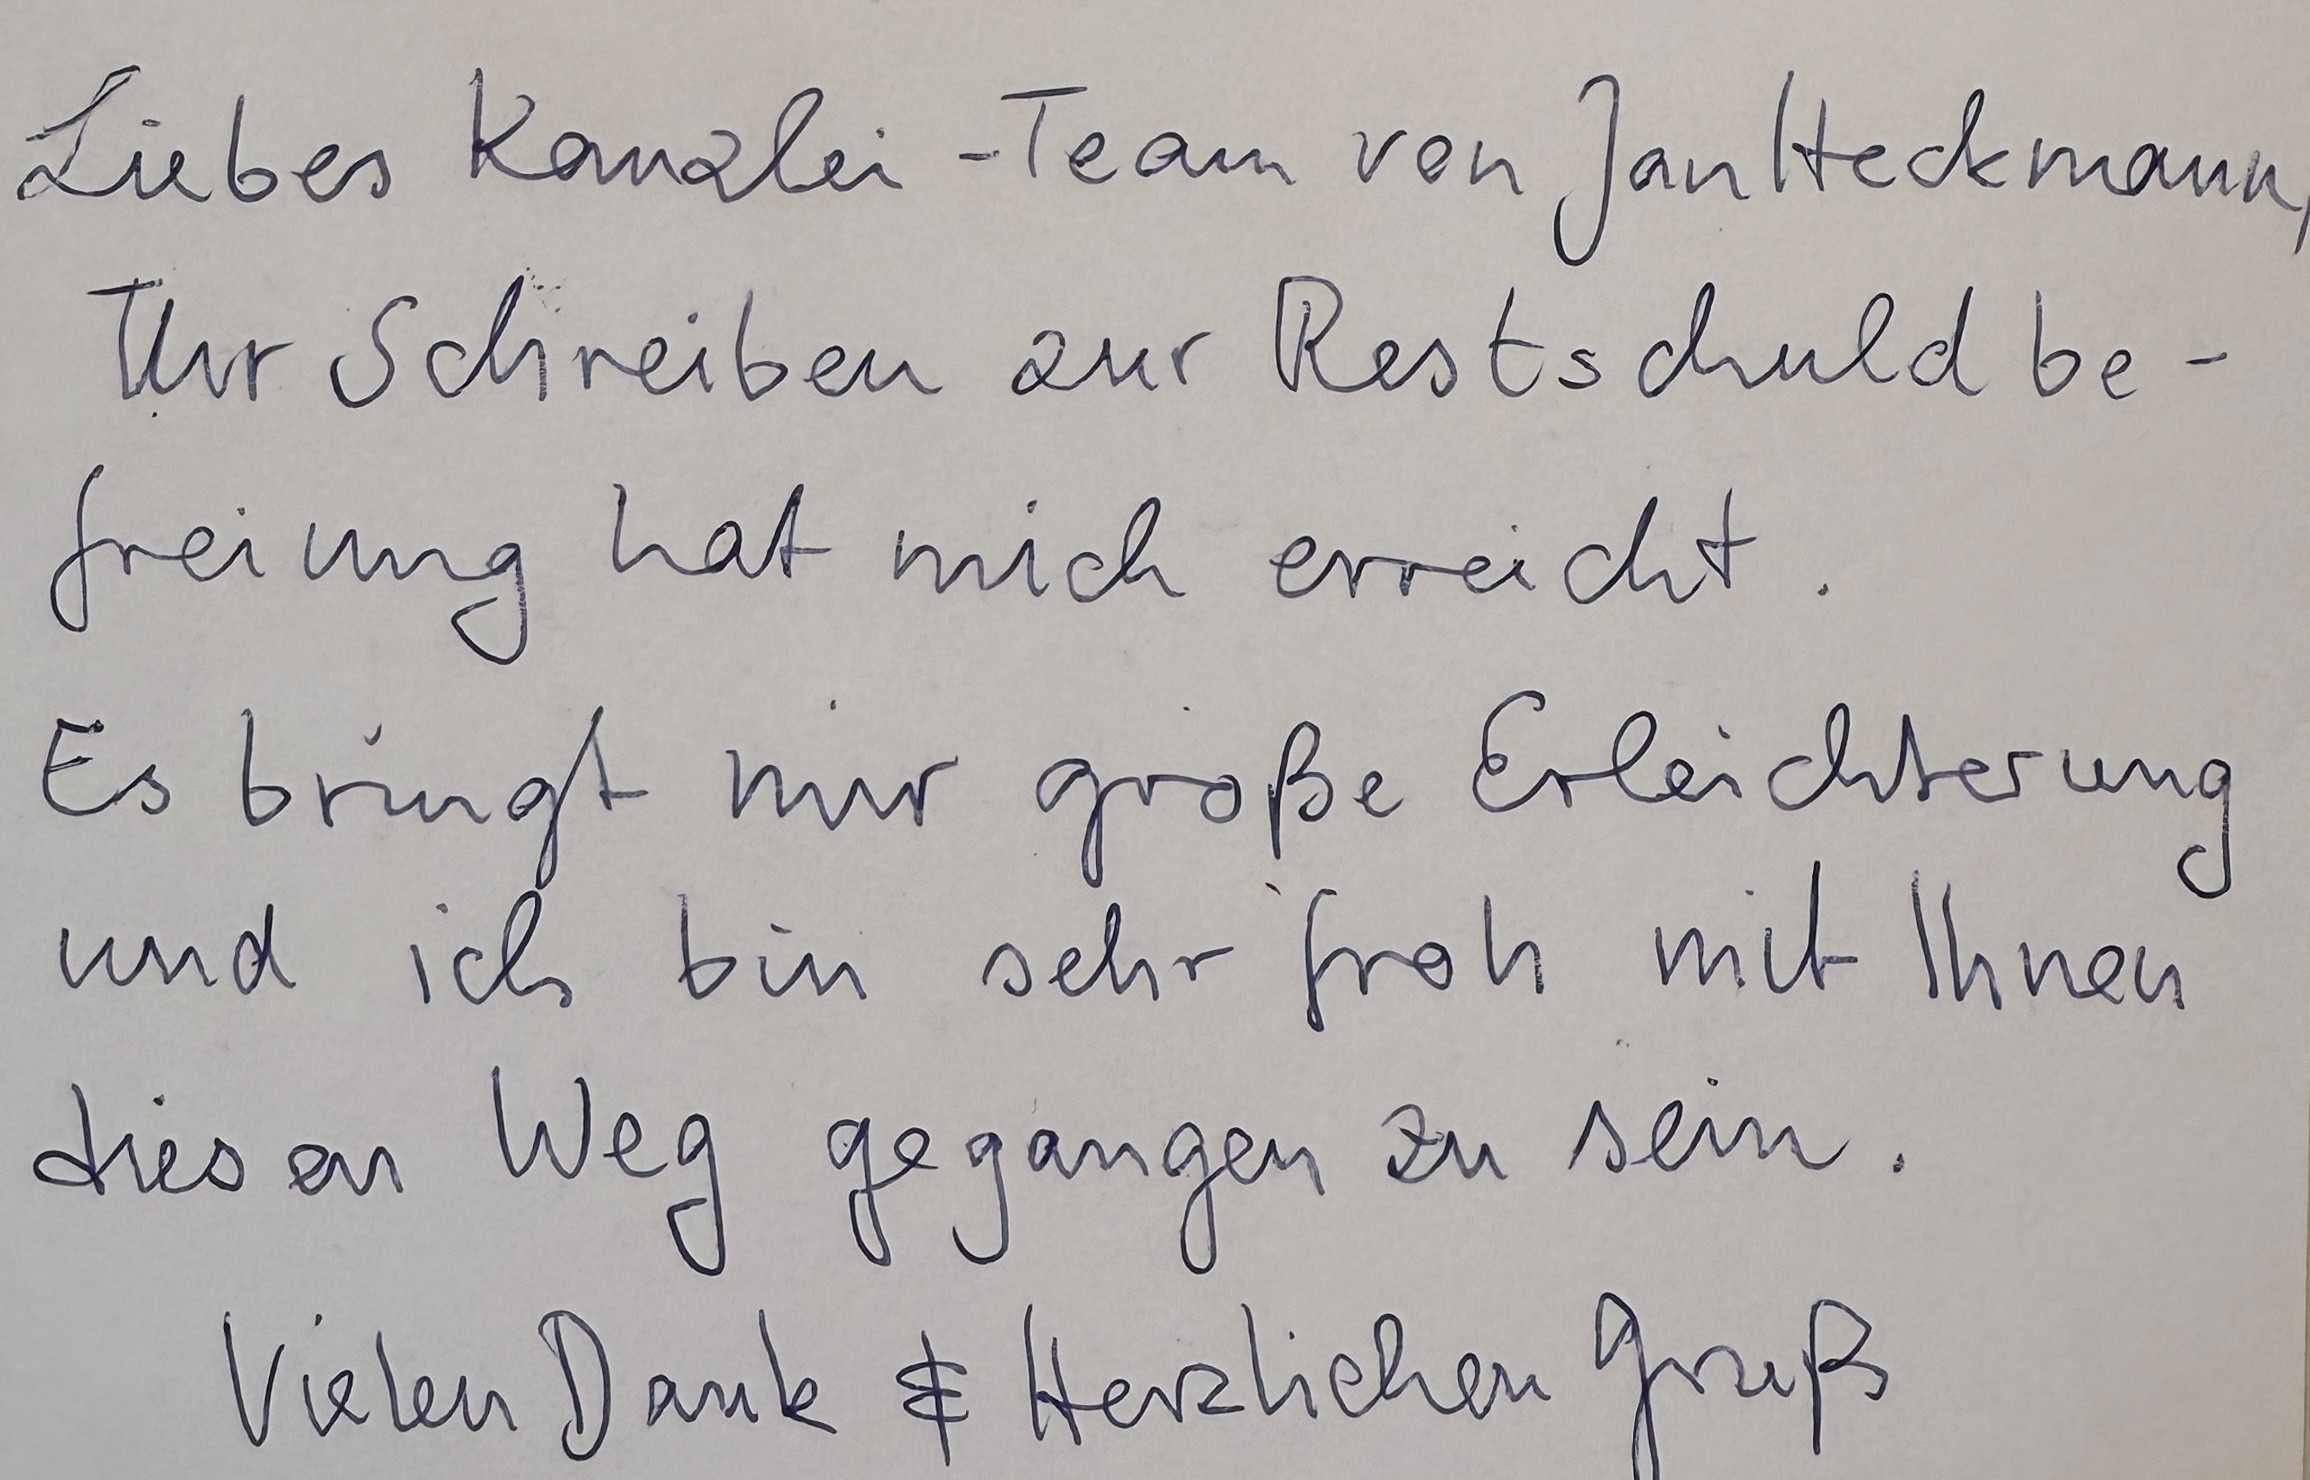 Liebes Kanzlei-Team von Jan Heckmann,
Ihr Schreiben zur Restschuldbe-
freiung hat mich erreicht.
Es bringt mir große Erleichterung
und ich bin sehr froh mit Ihnen
diesen Weg gegangen zu sein.
Vielen Dank & Herzlichen Gruß